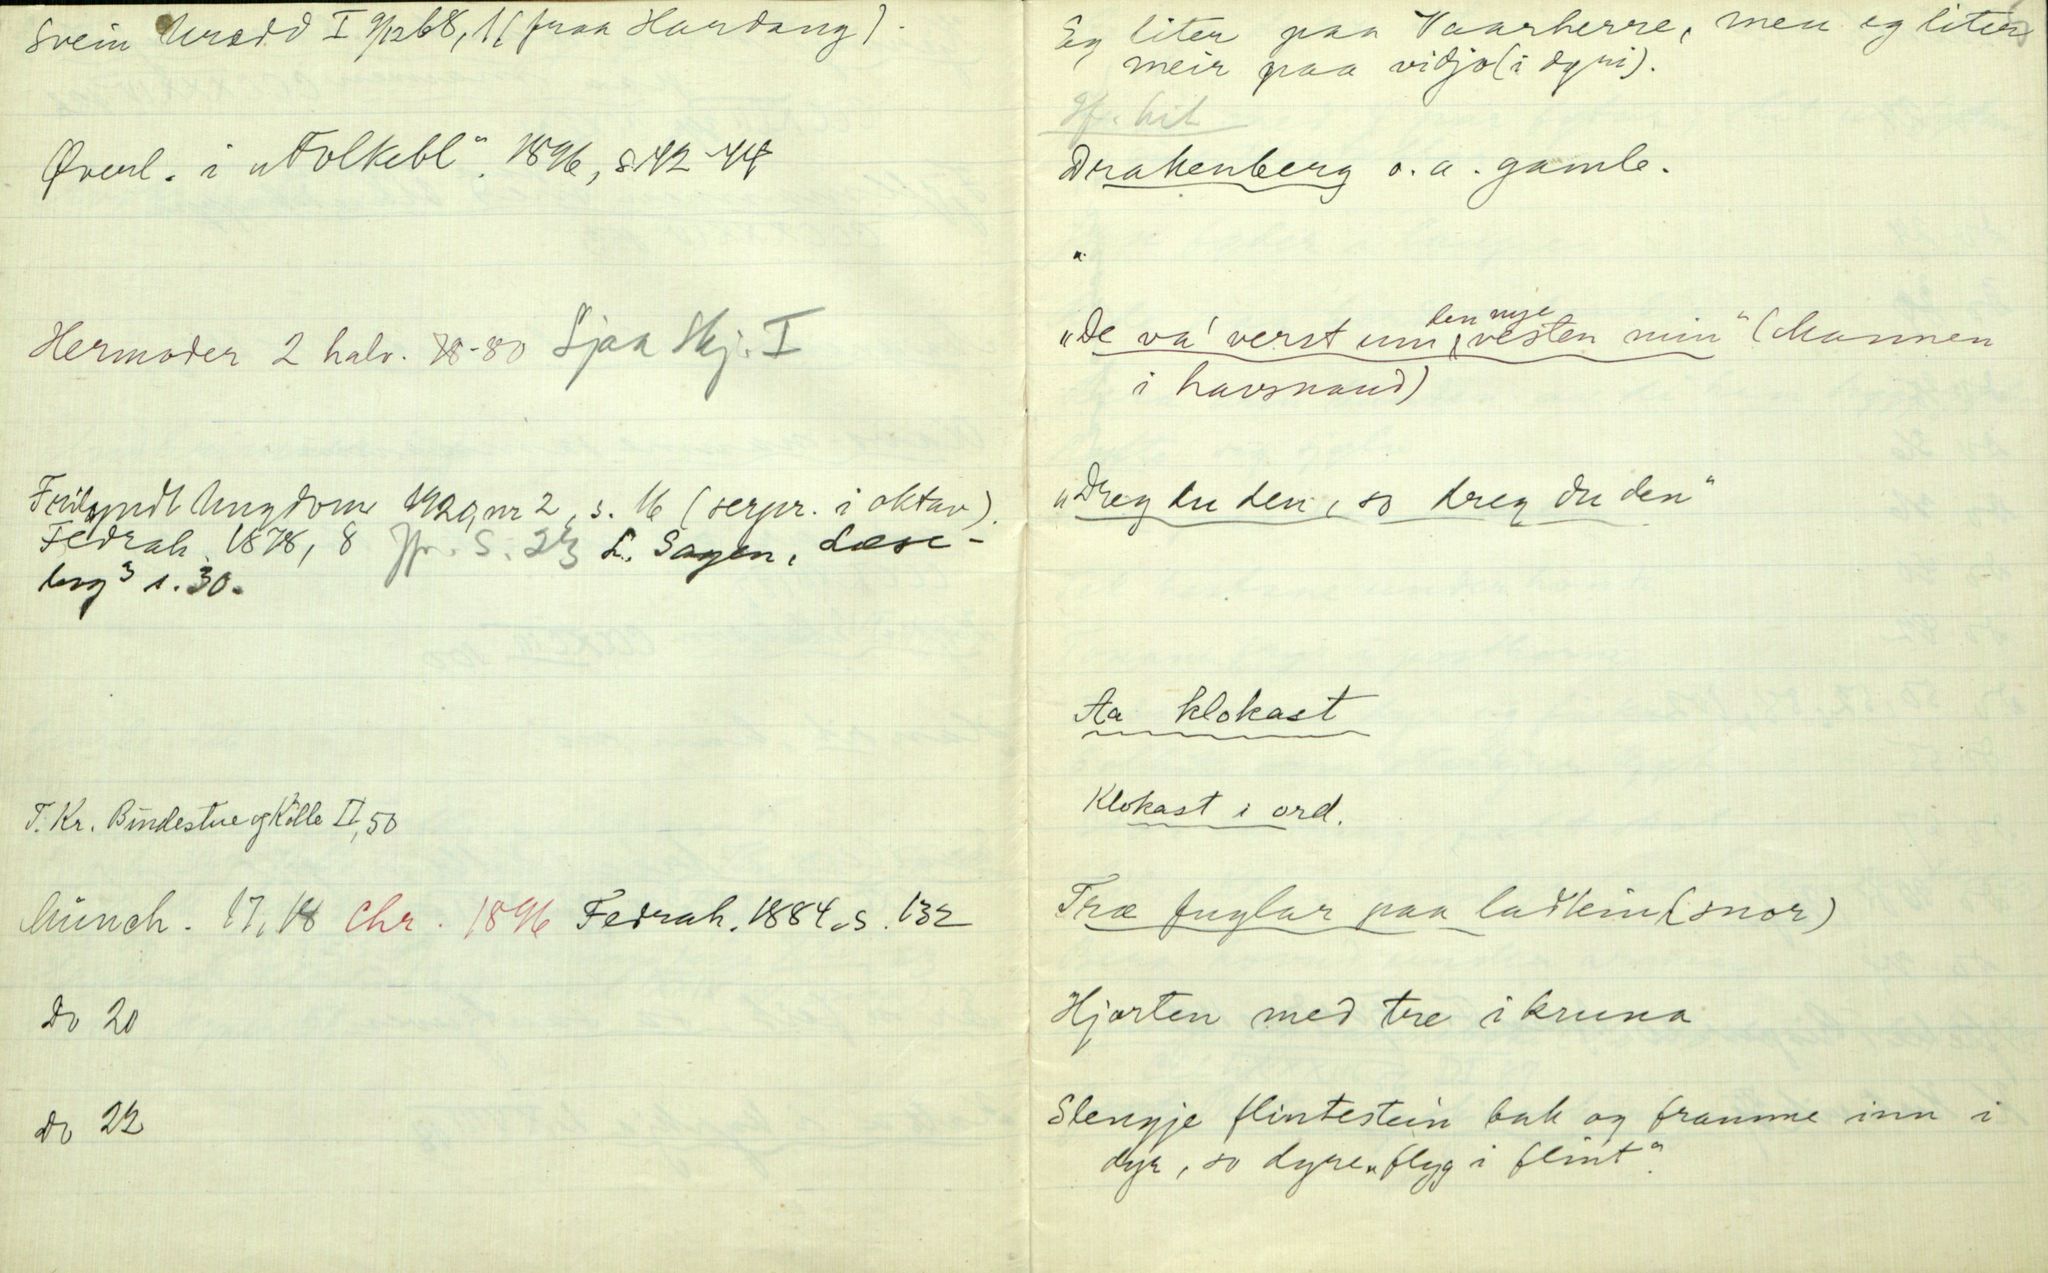 Svein Uræd I 9/12 68, 1 (fraa Hardang).
Øverl. i „Folkebl“. 1896, s. 42-44
Hermoder 2 halv. 78-80 Sjaa Skj. I
Frilyndt Ungdom 1929, nr 2, s. 16 (serpr. i oktav).
Fedrah. 1878, 8 Jfr. S. L. Sagen, Læse-
bog 3 s. 30.
T. Kr. Bindestue og Kölle II, 50
Münch. 17, 18 Chr. 1896 Fedrah. 1884, s. 132
Do 20
Do 22
Eg liter paa Vaarherre, men eg liter
meir paa vidjo (i dyri).
Drakenberg o. a. gamle.
"
„De va' verst um den nye vesten min“ (Mannen
i havsnaud)
„Dreg du den, so dreg du den“
Aa klokast
Klokast i ord.
Træ fuglar paa ladtein (snor)
Hjorten med tre i kruna
Slengje flintestein bak og framme inn i
dyr, so dyre „flyg i flint“.